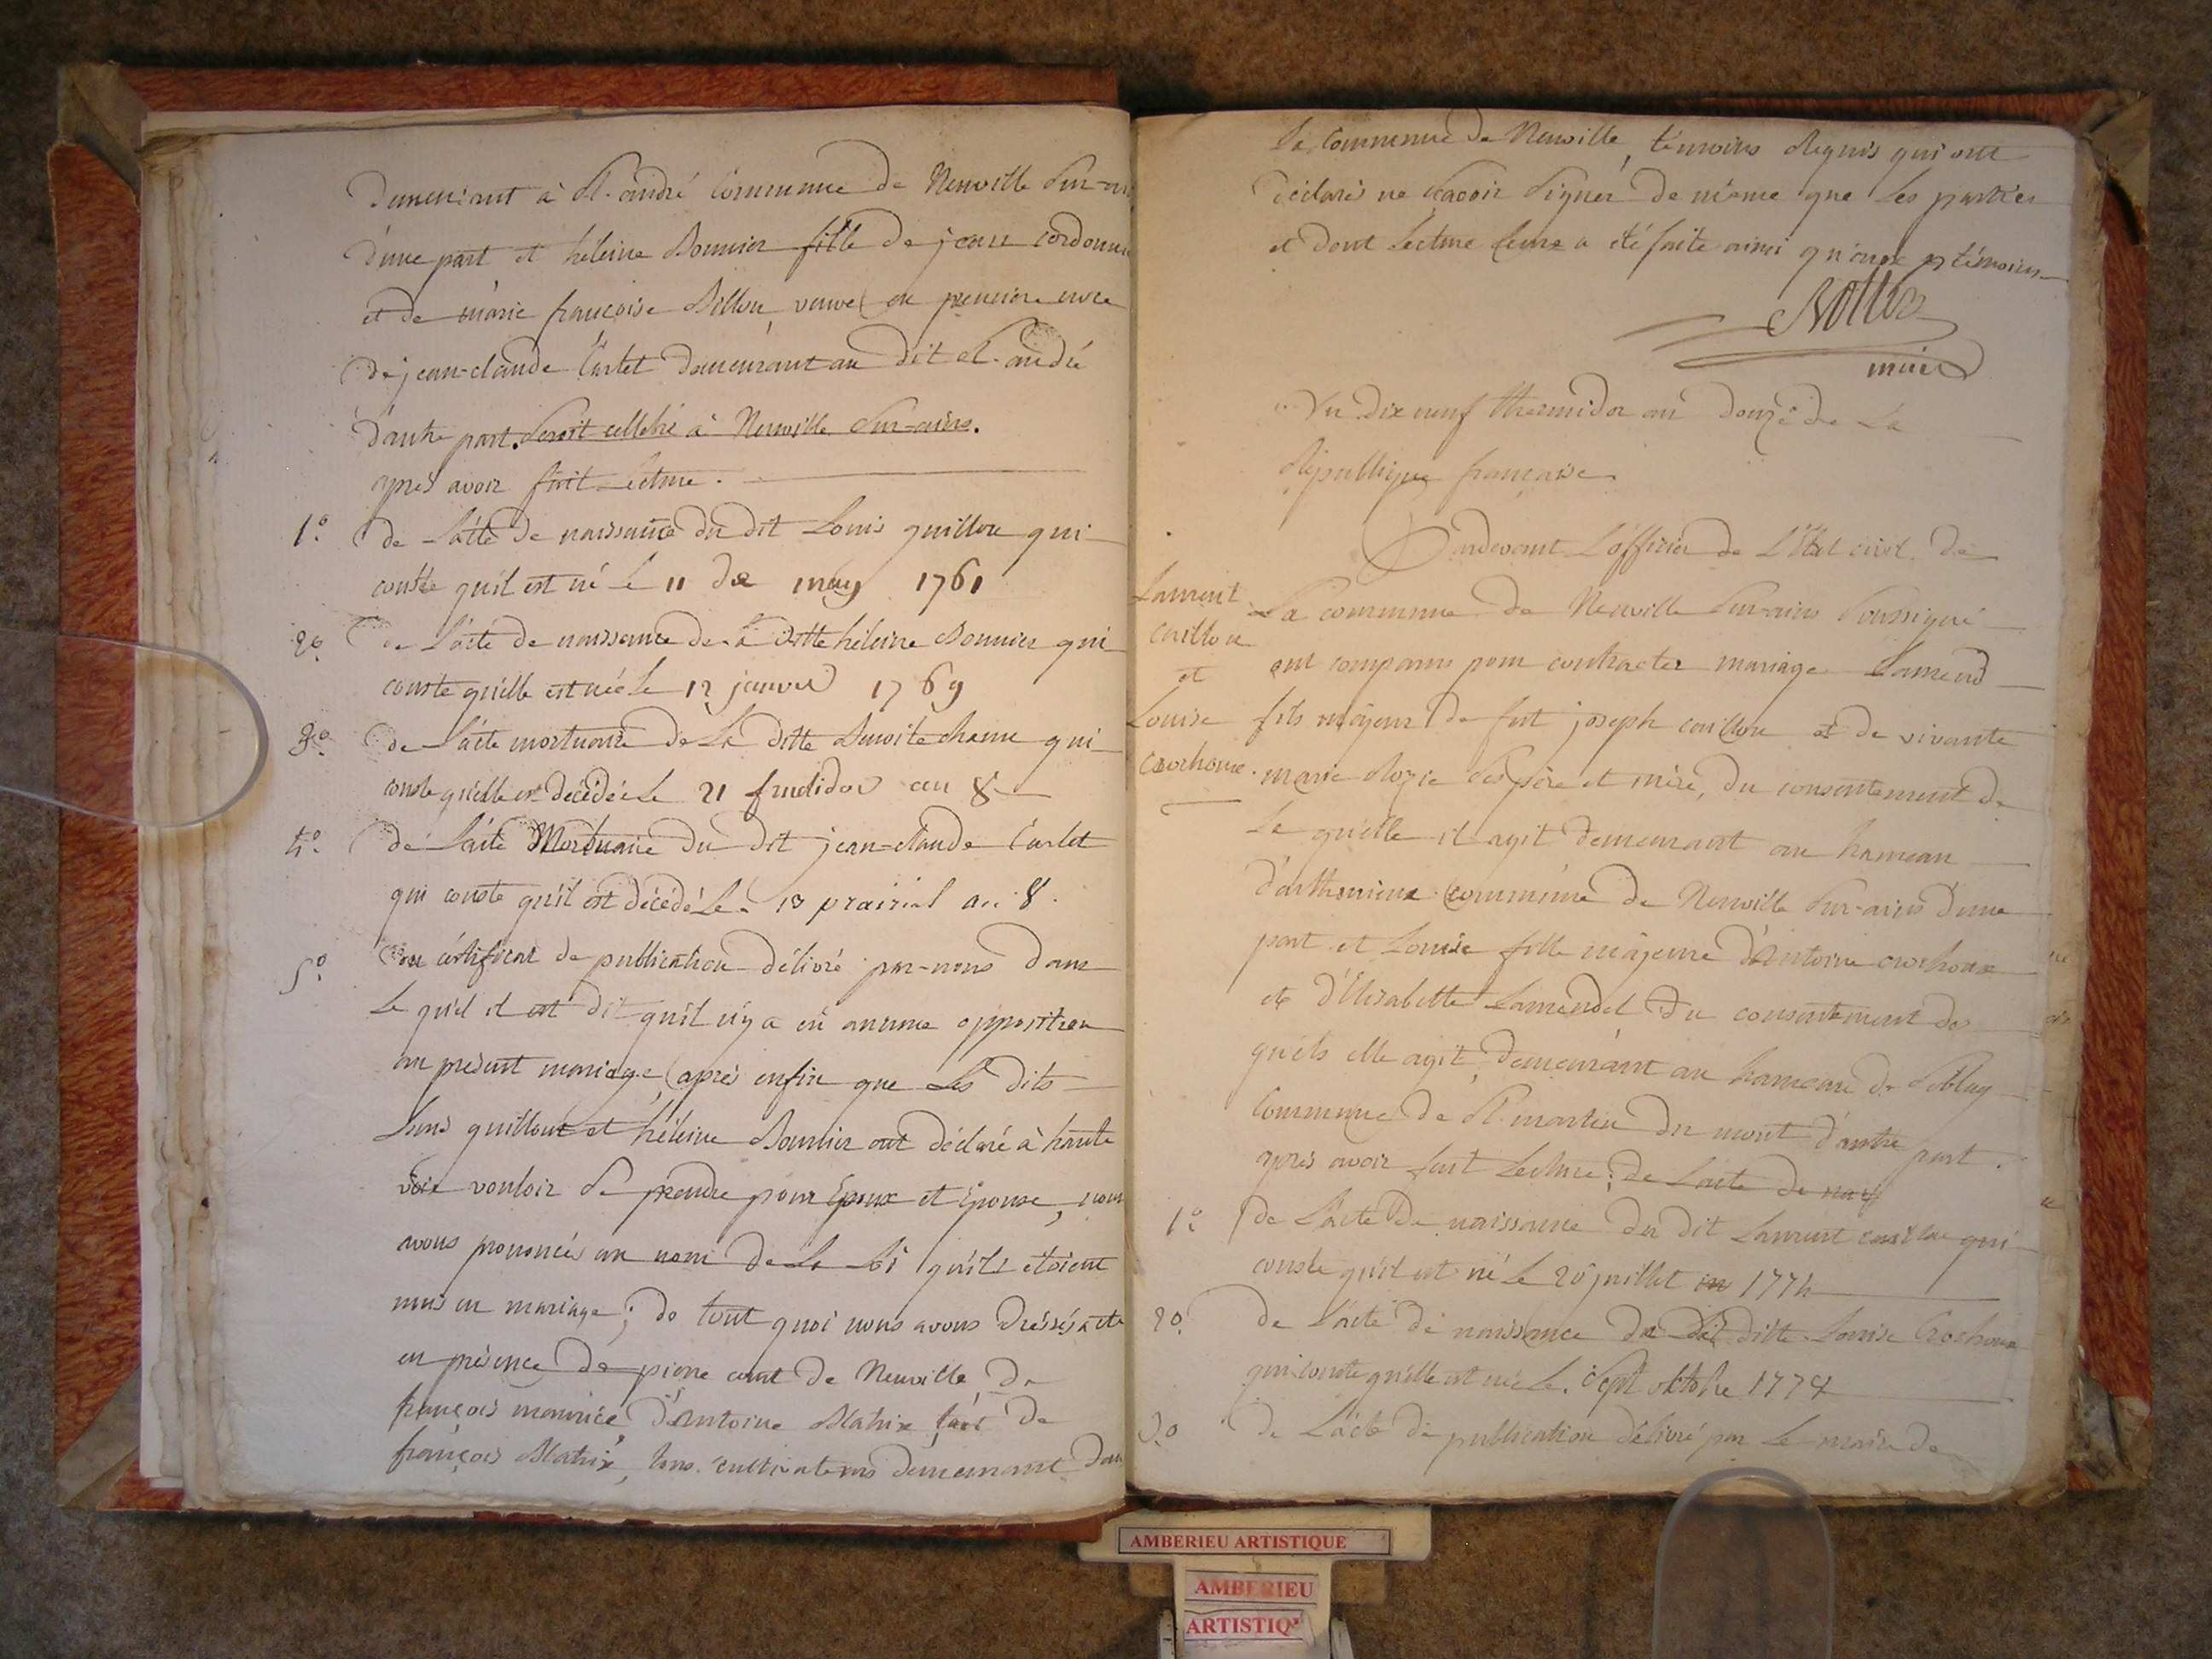 demeurant à St. andré Commune de Neuville Sur-ain
d'une part et heleine Bonnier fille de jean cordonnier
et de marie françoise Billon, veuve en premiere
de jean-claude Carlet demeurant au dit St. andré
d'autre part. Seroit cellebré à Neuville Sur-ains.
après avoir fait Lecture.
1.° de L'acte de naissance du dit Louis guillon qui
conste qu'il est né le 11 de may 1761
2.° de L'acte de naissance de la ditte heleine Bonnier qui
conste qu'elle est née le 12 janvier 1769
3.° de L'acte mortuaire de La ditte Benoite qui
conste qu'elle est decedée Le 21 fructidor an 8
4.° de L'acte Mortuaire du dit jean-claude Carlet
qui conste qu'il est décédé Le 13 prairial an 8.
5.° du certificat de publication délivré par-nous dans
Le quel il est dit qu'il n'y a eü aucune opposition
au present mariage, après enfin que Les dits
Louis guillon et héleine Bonnier ont déclaré à haute
voix vouloir Se prendre pour Epoux et Epouse, nous
avons prononcés au nom de La Loi qu'ils etoient
unis en mariage; de tout quoi nous avons dressés acte
en présence de pierre de Neuville, de
françois maurice, d'Antoine Mathix de
françois Mathix, tous cultivateurs demeurant dans
La Commune de Neuville, témoins Requis qui ont
déclarés ne Scavoir Signer de même que Les parties
et dont Lecture Leure a été faite ainsi qu'aux témoins
maire
Du dix neuf thermidor an douze de La
République française.
Pardevant L'officier de L'Etat civil de
La commune de Neuville Sur-ains Soussigné
Laurent
Caillon
et
Louise
Crochoux.
ont comparus pour contracter mariage Laurend
fils majeur de fut joseph caillon et de vivante
marie Rozie Ses père et mère, du consentement de
La quelle il agit demeurant au hameau
d'arthonieux commune de Neuville Sur-ains d'une
part et Louise fille majeure d'Antoine crochoux
et d'Elizabette Lamendel du consentement des
quels elle agit, demeurant au hameau de Soblay
Commune de St. martin du mont d'autre part.
après avoir fait Lecture; de L'acte de nais
1.° de L'acte de naissance du dit Laurent caillon qui
conste qu'il est né Le 20 juillet 1774
2.° de L'acte de naissance de ditte Louise Crochoux
qui conste qu'elle est née Le Sept octobre 1774
3.° de L'acte de publication délivré par Le maire de
AMBERIEU ARTISTIQUE
AMBERIEU
ARTISTIQ